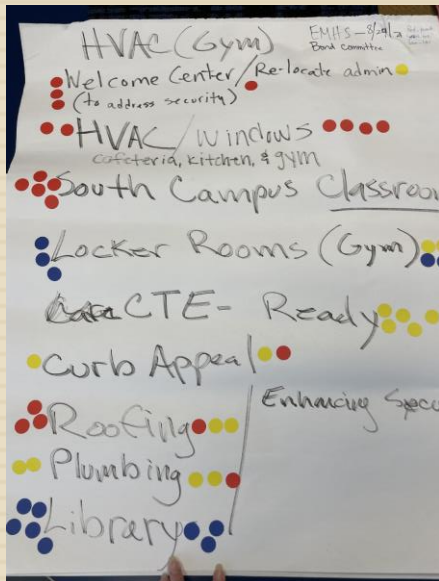 HVAC (Gym)
EMHS - 8/29/
Bond committee
Welcome Center/Re-locate admin
(to address security)
HVAC/windows
Cafeteria, kitchen, & gym
South Campus Classroo
Locker Rooms (Gym)
CTE- Ready
Curb Appeal
Enhancing
Roofing
Plumbing
Library